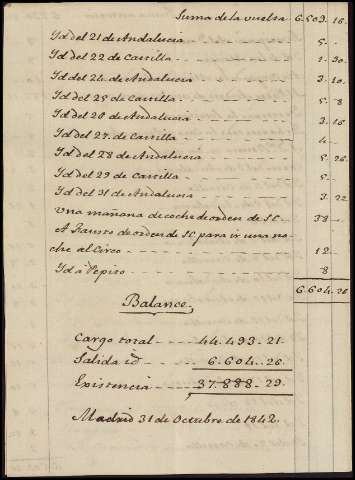 Suma de la vuelta 6.503. 16.
Yd del 21 de Andalucia 5. -
Yd del 22 de Castilla 1. 30
Yd del 24 de Andalucia 3. 10
Yd del 25 de Castilla 5. 8
Yd del 20 de Andalucia 3. 16
Yd del 27. de Castilla 4. -
Yd del 28 de Andalucia 5. 26
Yd del 29 de Castilla 5.
Yd del 31 de Andalucia 3. 22
Una mañana de coche de orden de S.E. 38 -
A Fausto de orden de S.E. para ir una no-
che al Circo 12 -
Yd à Pepito 8
6.604. 26
Balance.
Cargo total 44.493. 21.
Salida id 6.604. 26.
Existencia 37.888. 29.
Madrid 31 de Octubre de 1842.